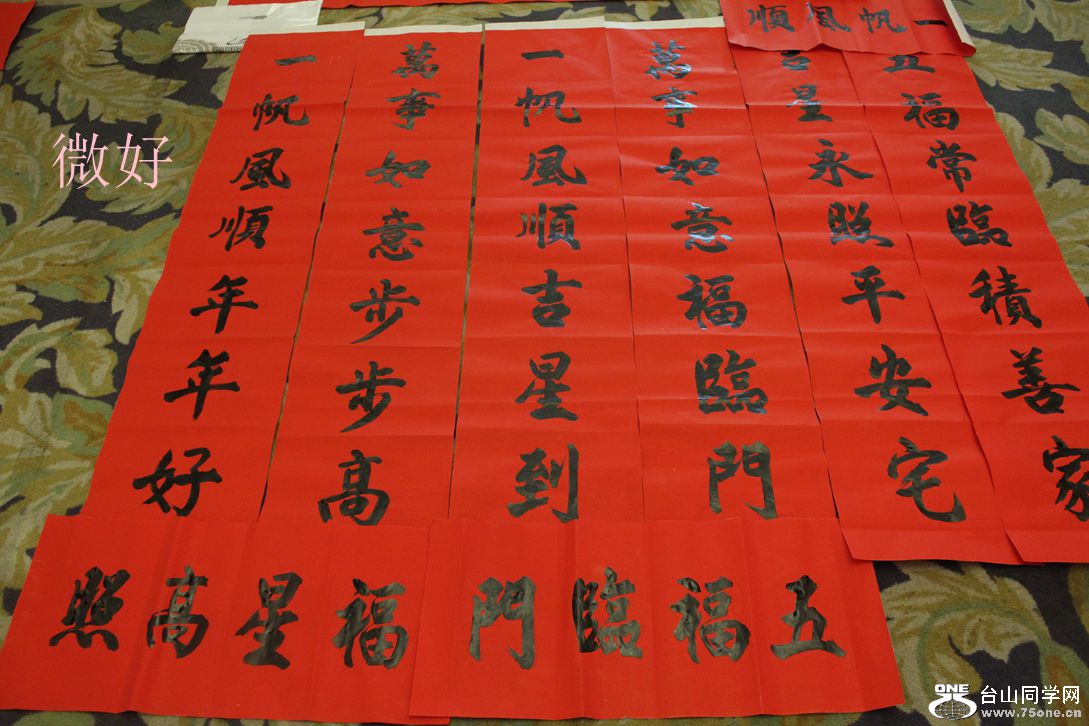 一帆風順
五福常臨積善家
吉星永照平安宅
萬事如意福臨門
一帆風順吉星到
萬事如意步步高
一帆風順年年好
五福臨門
福星高照
微好
ONE
台山同学网
www.75one.cn